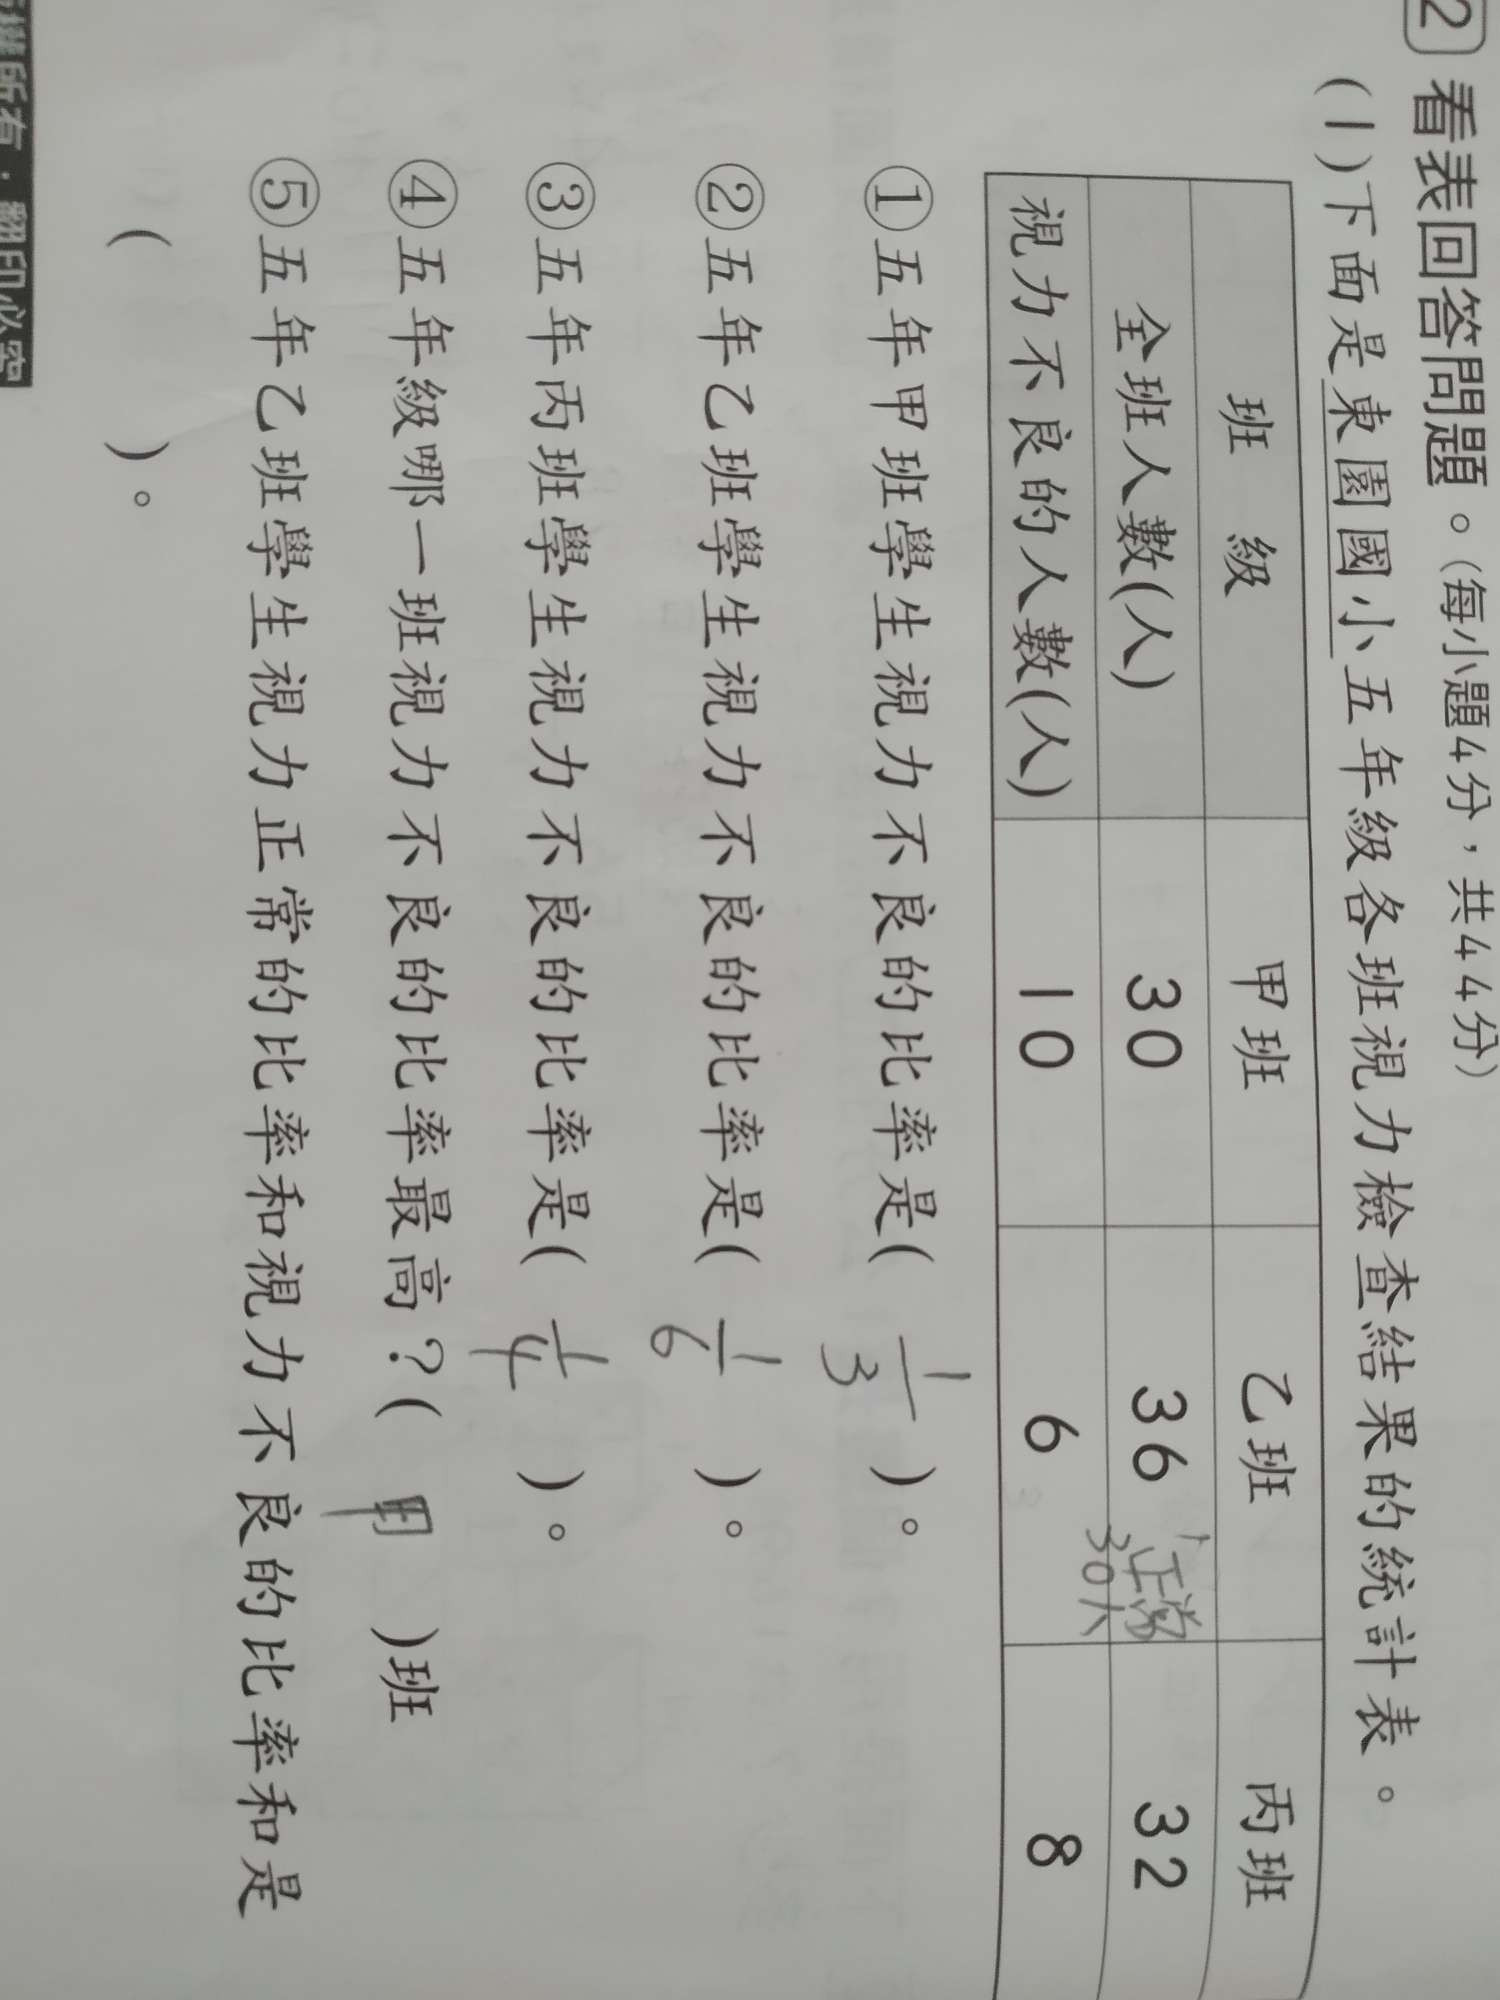 2 看表回答問題。(每小題4分，共44分)
(1)下面是東園國小五年級各班視力檢查結果的統計表。
班 級 甲班 乙班 丙班
全班人數(人) 30 36 32
正常
30人
視力不良的人數(人) 10 6 8
①五年甲班學生視力不良的比率是( 1/3 )。
②五年乙班學生視力不良的比率是( 1/6 )。
③五年丙班學生視力不良的比率是( 1/4 )。
④五年級哪一班視力不良的比率最高？( 甲 )班
⑤五年乙班學生視力正常的比率和視力不良的比率和是
( )。
所有‧翻印必究